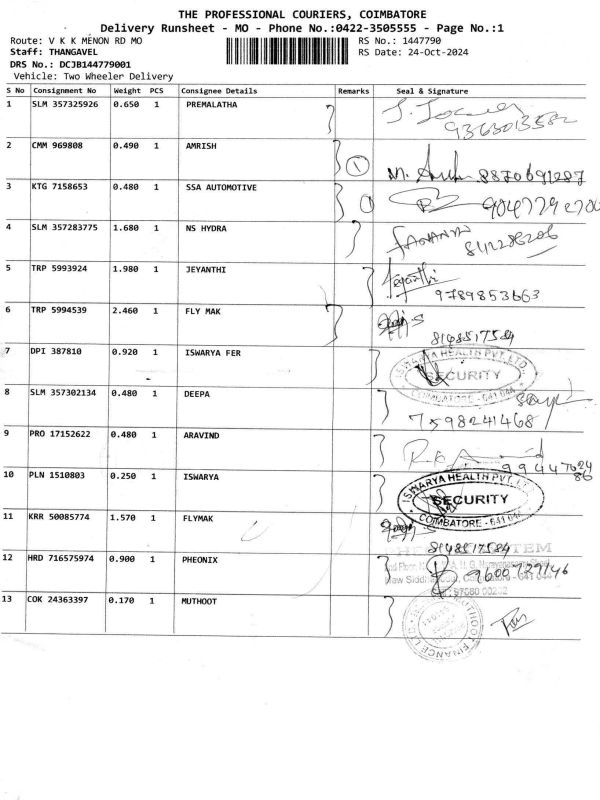 THE PROFESSIONAL COURIERS, COIMBATORE
Delivery Runsheet - MO - Phone No.:0422-3505555 - Page No.:1
Route: V K K MENON RD MO
RS No.: 1447790
Staff: THANGAVEL
RS Date: 24-Oct-2024
DRS No.: DCJB144779001
Vehicle: Two Wheeler Delivery
S No Consignment No Weight PCS Consignee Details Remarks Seal & Signature
1 SLM 357325926 0.650 1 PREMALATHA
9363013582
2 CMM 969808 0.490 1 AMRISH
1 8870691287
3 KTG 7158653 0.480 1 SSA AUTOMOTIVE
1
4 SLM 357283775 1.680 1 NS HYDRA
5 TRP 5993924 1.980 1 JEYANTHI
Jeyanthi
9789853663
6 TRP 5994539 2.460 1 FLY MAK
8148517584
7 DPI 387810 0.920 1 ISWARYA FER
ISWARYA HEALTH PVT. LTD.
SECURITY
COIMBATORE - 641 044
8 SLM 357302134 0.480 1 DEEPA
7598241468
9 PRO 17152622 0.480 1 ARAVIND
10 PLN 1510803 0.250 1 ISWARYA
ISWARYA HEALTH PVT. LTD.
SECURITY
COIMBATORE - 641 044
11 KRR 50085774 1.570 1 FLYMAK
8148517584
12 HRD 716575974 0.900 1 PHEONIX
9600729146
13 COK 24363397 0.170 1 MUTHOOT